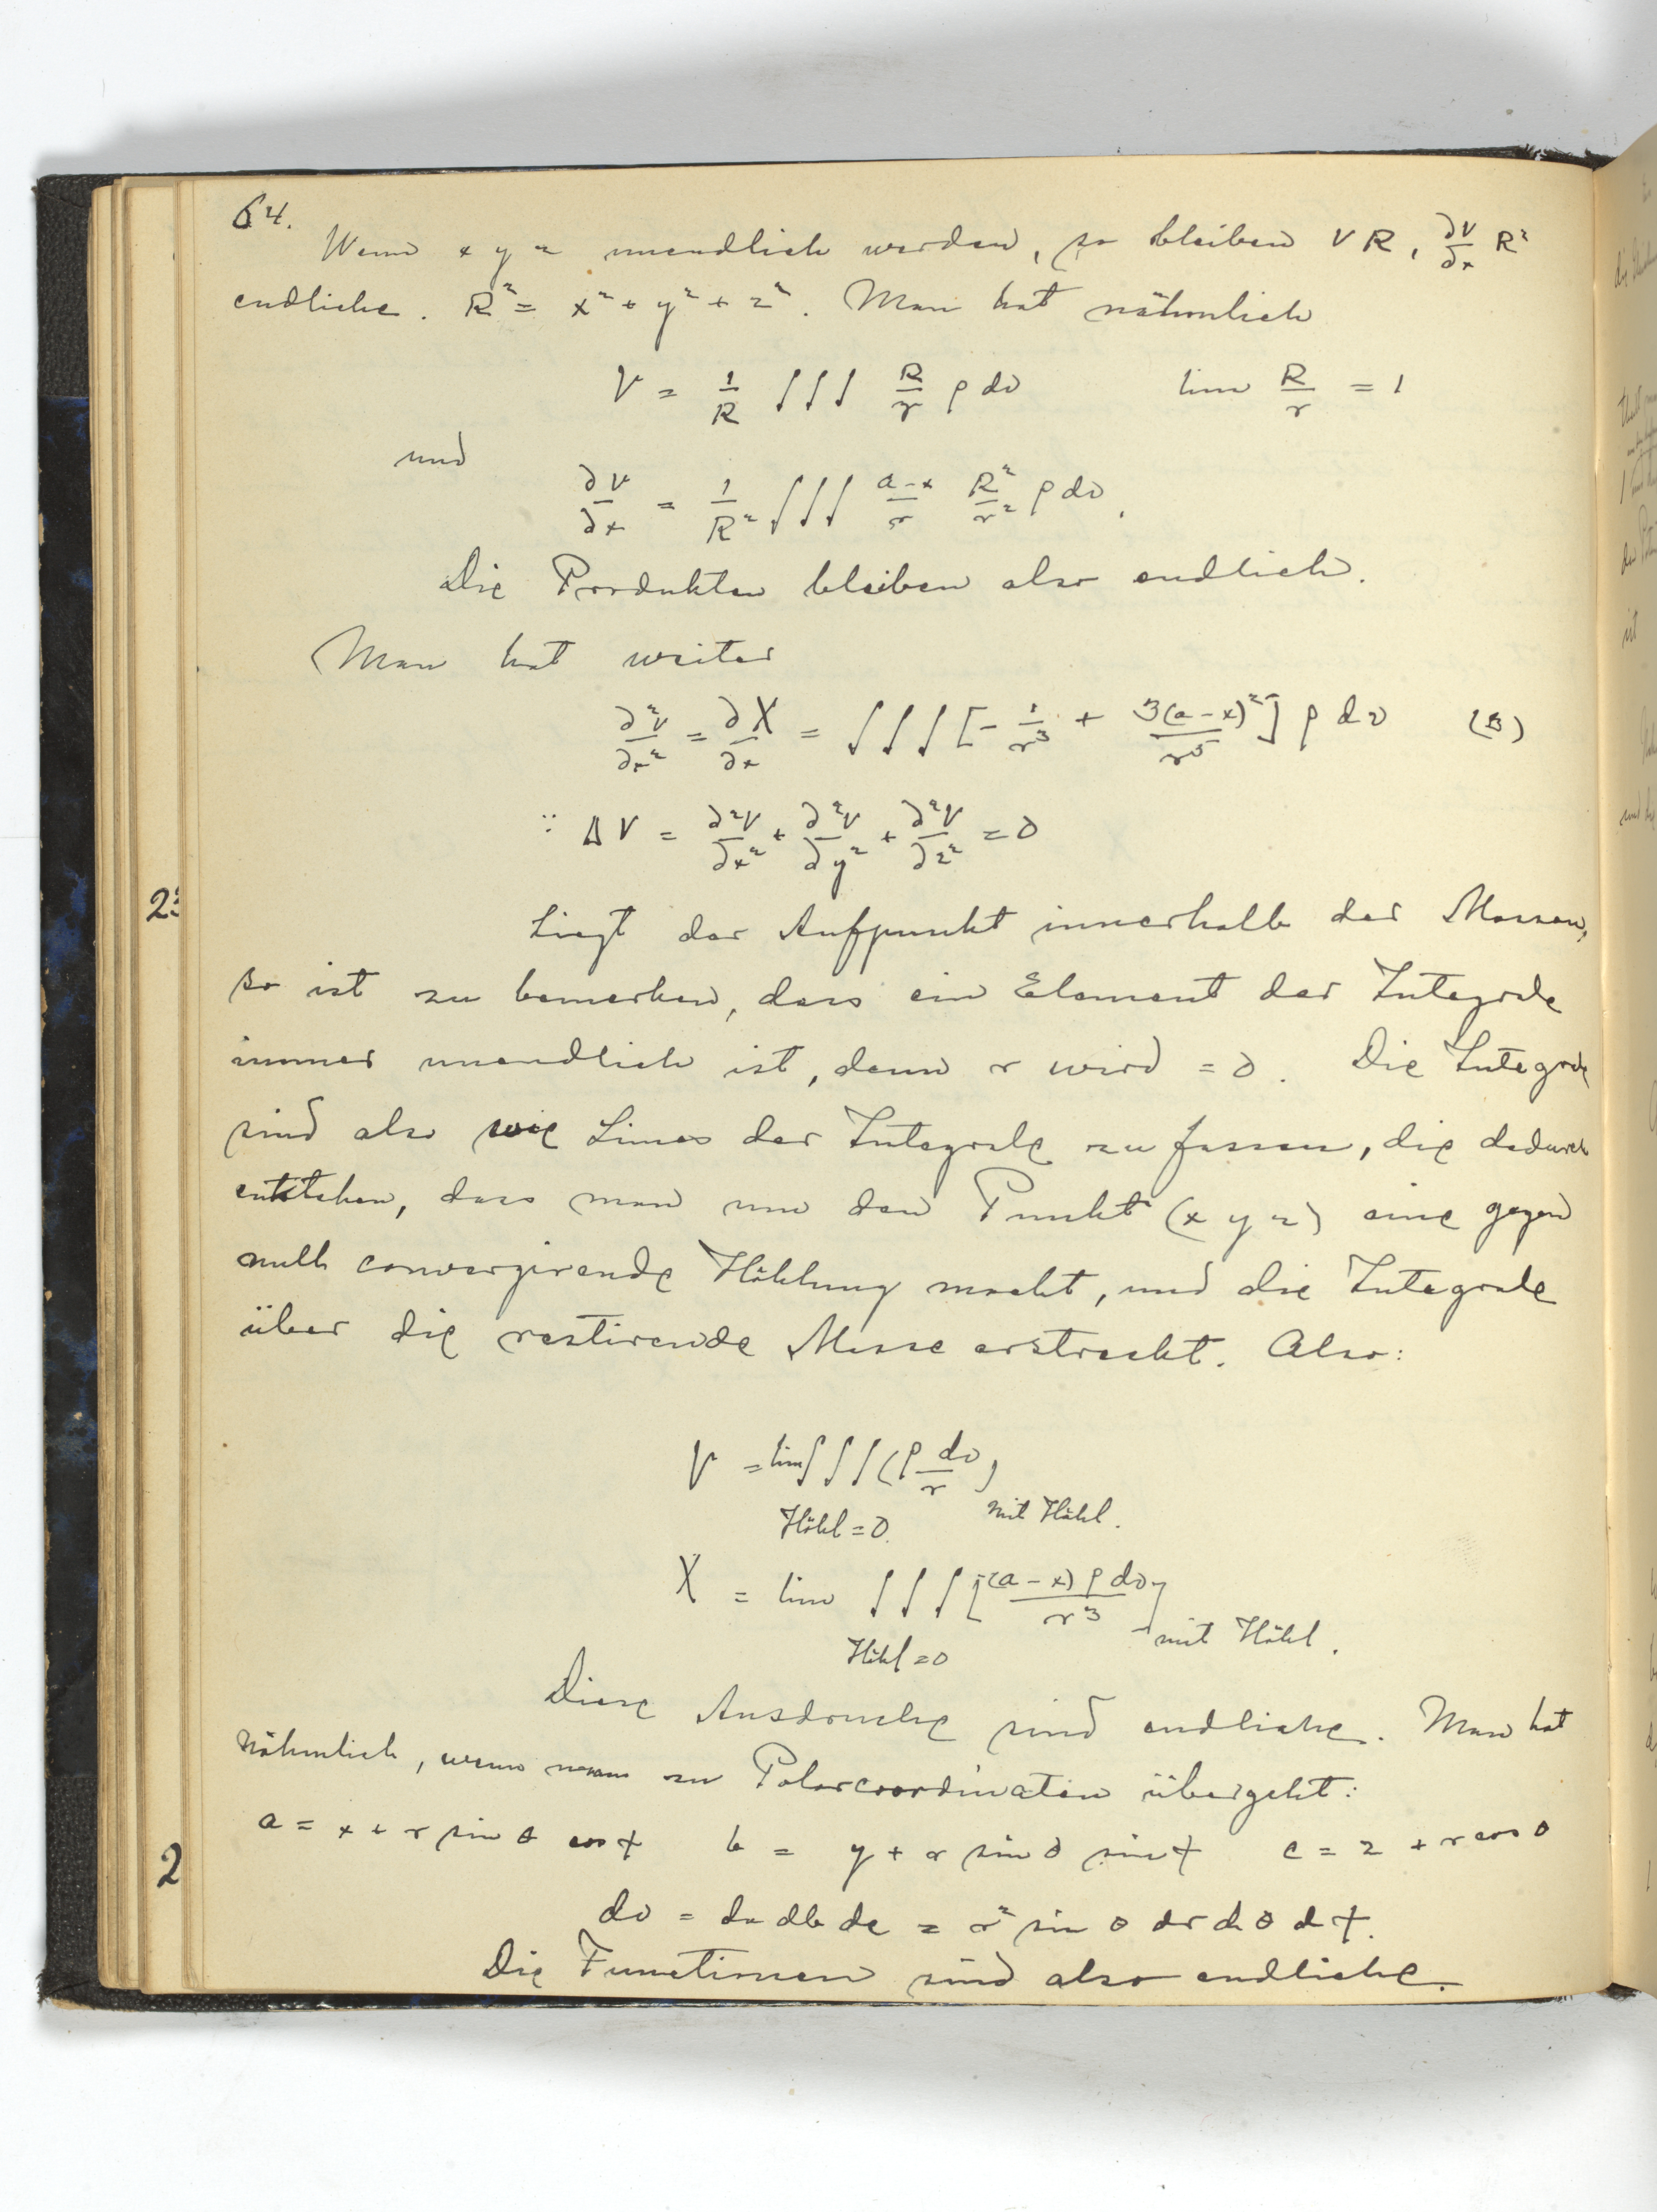 64.
Wenn x y z unendlich werden, so bleiben VR, ∂V/∂x R²
endliche. R² = x² + y² + z². Man hat nähmlich
V = 1/R ∫∫∫ R/r ρ dv lim R/r = 1
und
∂V/∂x = 1/R² ∫∫∫ (a-x)/r R²/r² ρ dv.
Die Produkten bleiben also endlich.
Man hat weiter
∂²V/∂x² = ∂X/∂x = ∫∫∫ [- 1/r³ + 3(a-x)²/r⁵] ρ dv (3)
∵ ΔV = ∂²V/∂x² + ∂²V/∂y² + ∂²V/∂z² = 0
Liegt der Aufpunkt innerhalb der Massen,
so ist zu bemerken, dass ein Element der Integrale
immer unendlich ist, denn r wird = 0. Die Integrale
sind also wie Limes der Integrale zu fassen, die dadurch
entstehen, dass man um den Punkt (x y z) eine gegen
null convergirende Höhlung macht, und die Integrale
über die restirende Masse erstreckt. Also:
V = lim ∫∫∫ (ρ dv/r)
Höhl = 0. mit Höhl.
X = lim ∫∫∫ [(a-x) ρ dv / r³]
Höhl = 0 mit Höhl.
Diese Ausdrucke sind endliche. Man hat
nähmlich, wenn man zu Polarcoordinaten übergeht:
a = x + r sin θ cos φ b = y + r sin θ sin φ c = z + r cos θ
dv = da db dc = r² sin θ dr dθ dφ.
Die Functionen sind also endliche.
23
2